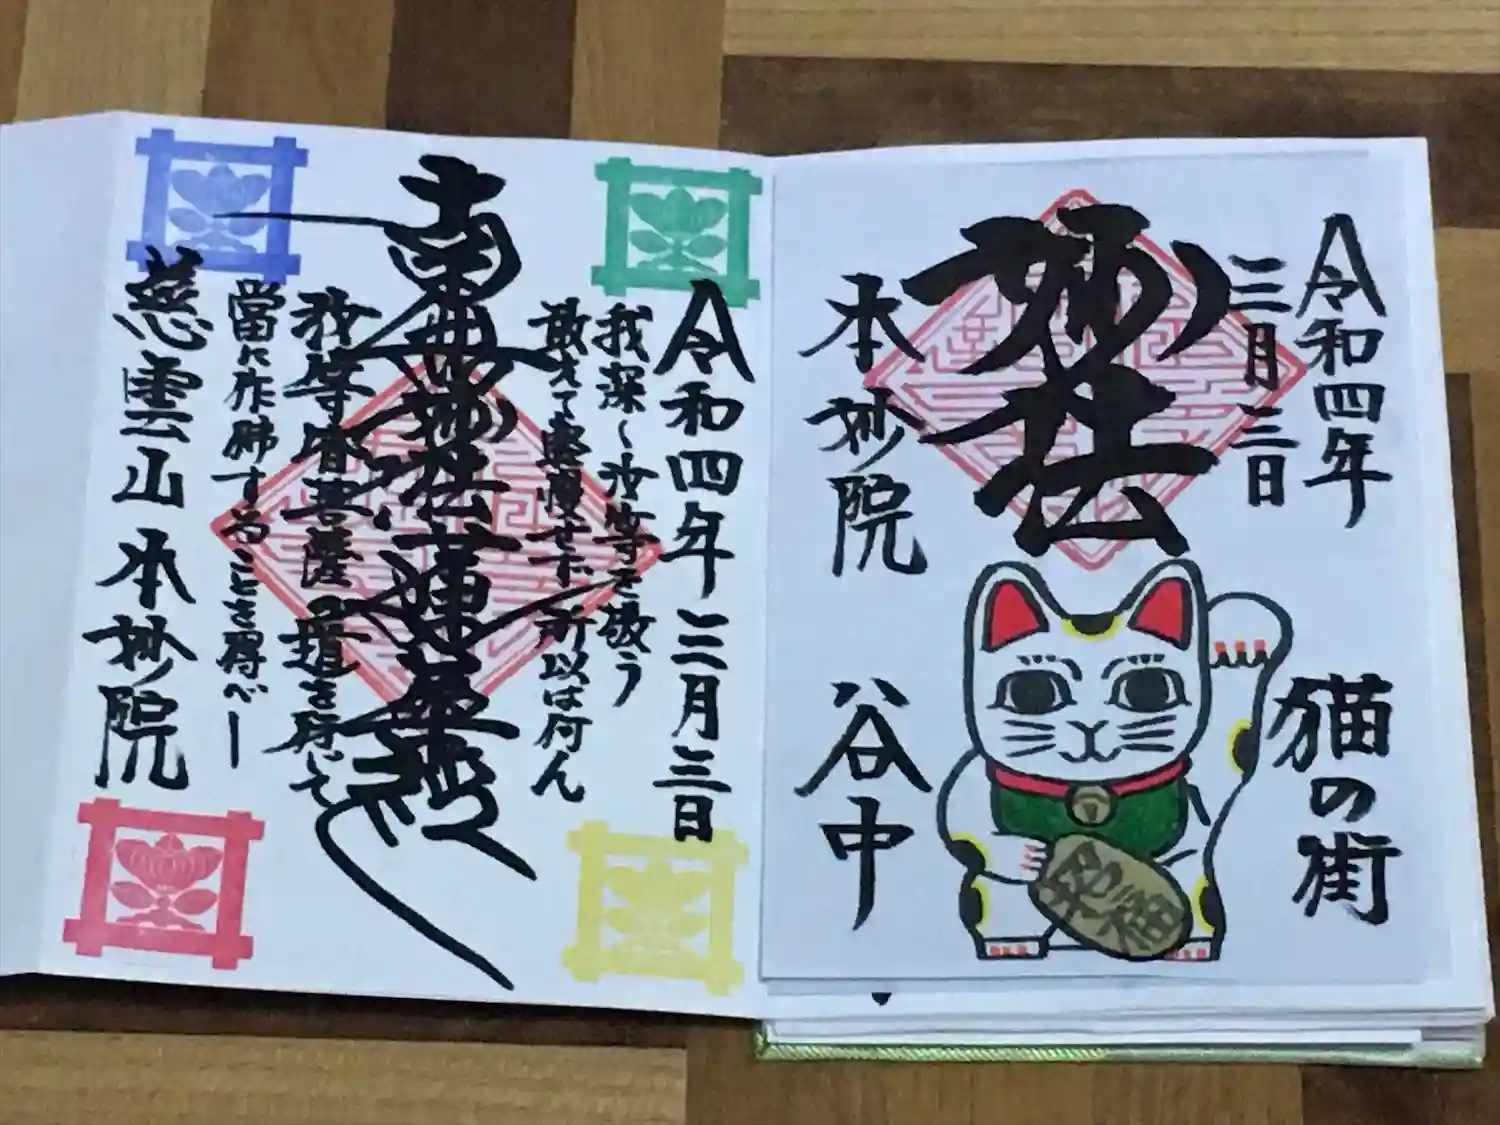 令和四年
三月三日
妙法
本妙院
猫の街
谷中
令和四年三月三日
我深く汝等を敬う
敢えて軽慢せず 所以は何ん
南無妙法蓮華経
我等皆菩薩の道を行いて
當に作佛することを得べし
慈雲山 本妙院